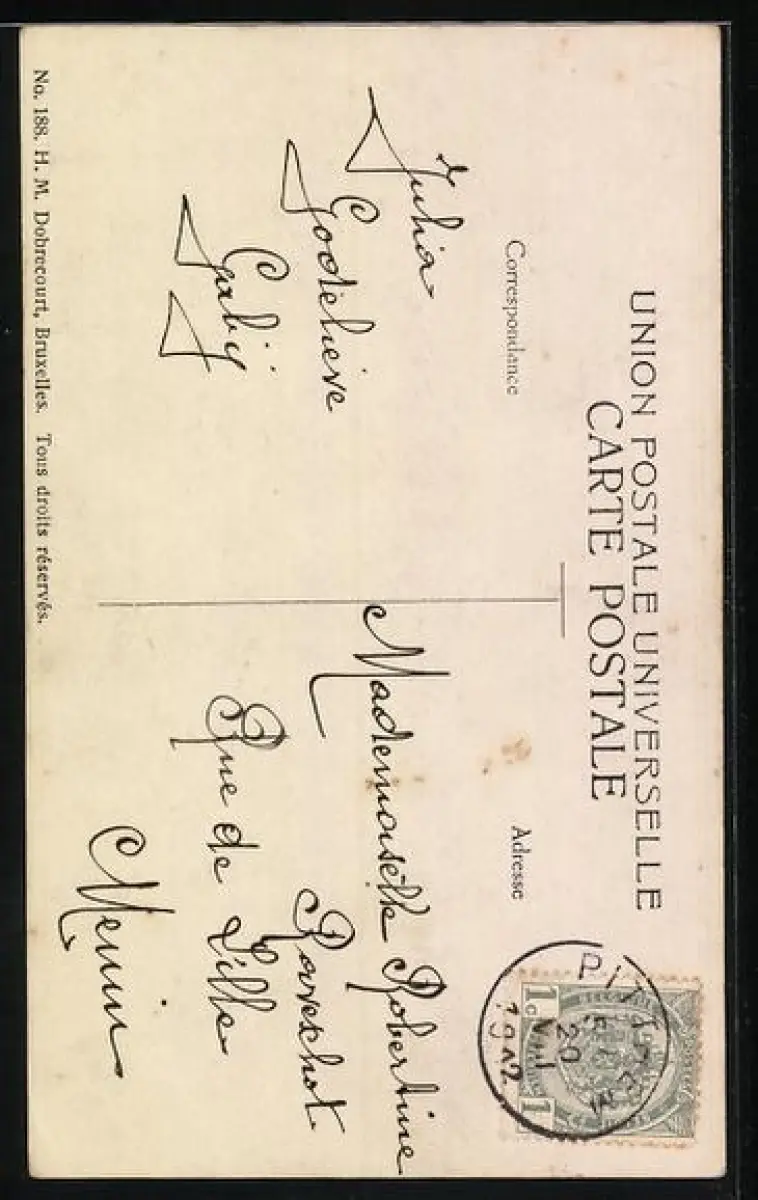 UNION POSTALE UNIVERSELLE
CARTE POSTALE
Correspondance
Adresse
Julia
Godelieve
Gabij
Mademoiselle Robertine
Raveschot
Rue de Lille
Menin
1c 1
20
1912
No. 188. H. M. Dobrecourt, Bruxelles. Tous droits réservés.